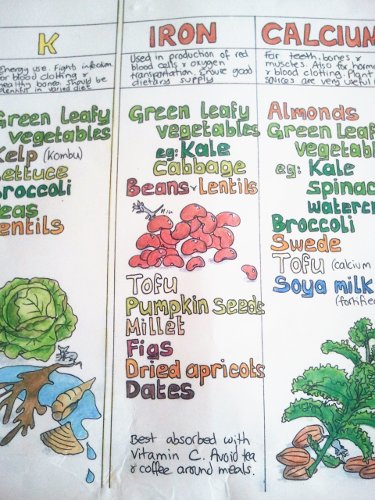 K
Energy use. Fights infection
for blood clotting &
healthy bones. should be
plentiful in varied diet
Green leafy
vegetables
Kelp (Kombu)
Lettuce
Broccoli
Peas
Lentils
IRON
Used in production of red
blood cells & oxygen
transportation. Ensure good
dietary supply
Green leafy
vegetables
eg: Kale
Cabbage
Beans & Lentils
Tofu
Pumpkin Seeds
Millet
Figs
Dried apricots
Dates
Best absorbed with
Vitamin C. Avoid tea
& coffee around meals.
CALCIUM
For teeth, bones &
muscles. Also for hormo
& blood clotting. Plant
sources are very useful
Almonds
Green Leafy
vegetabl
eg: Kale
spinac
watercr
Broccoli
Swede
Tofu (calcium
Soya milk
(fortifie